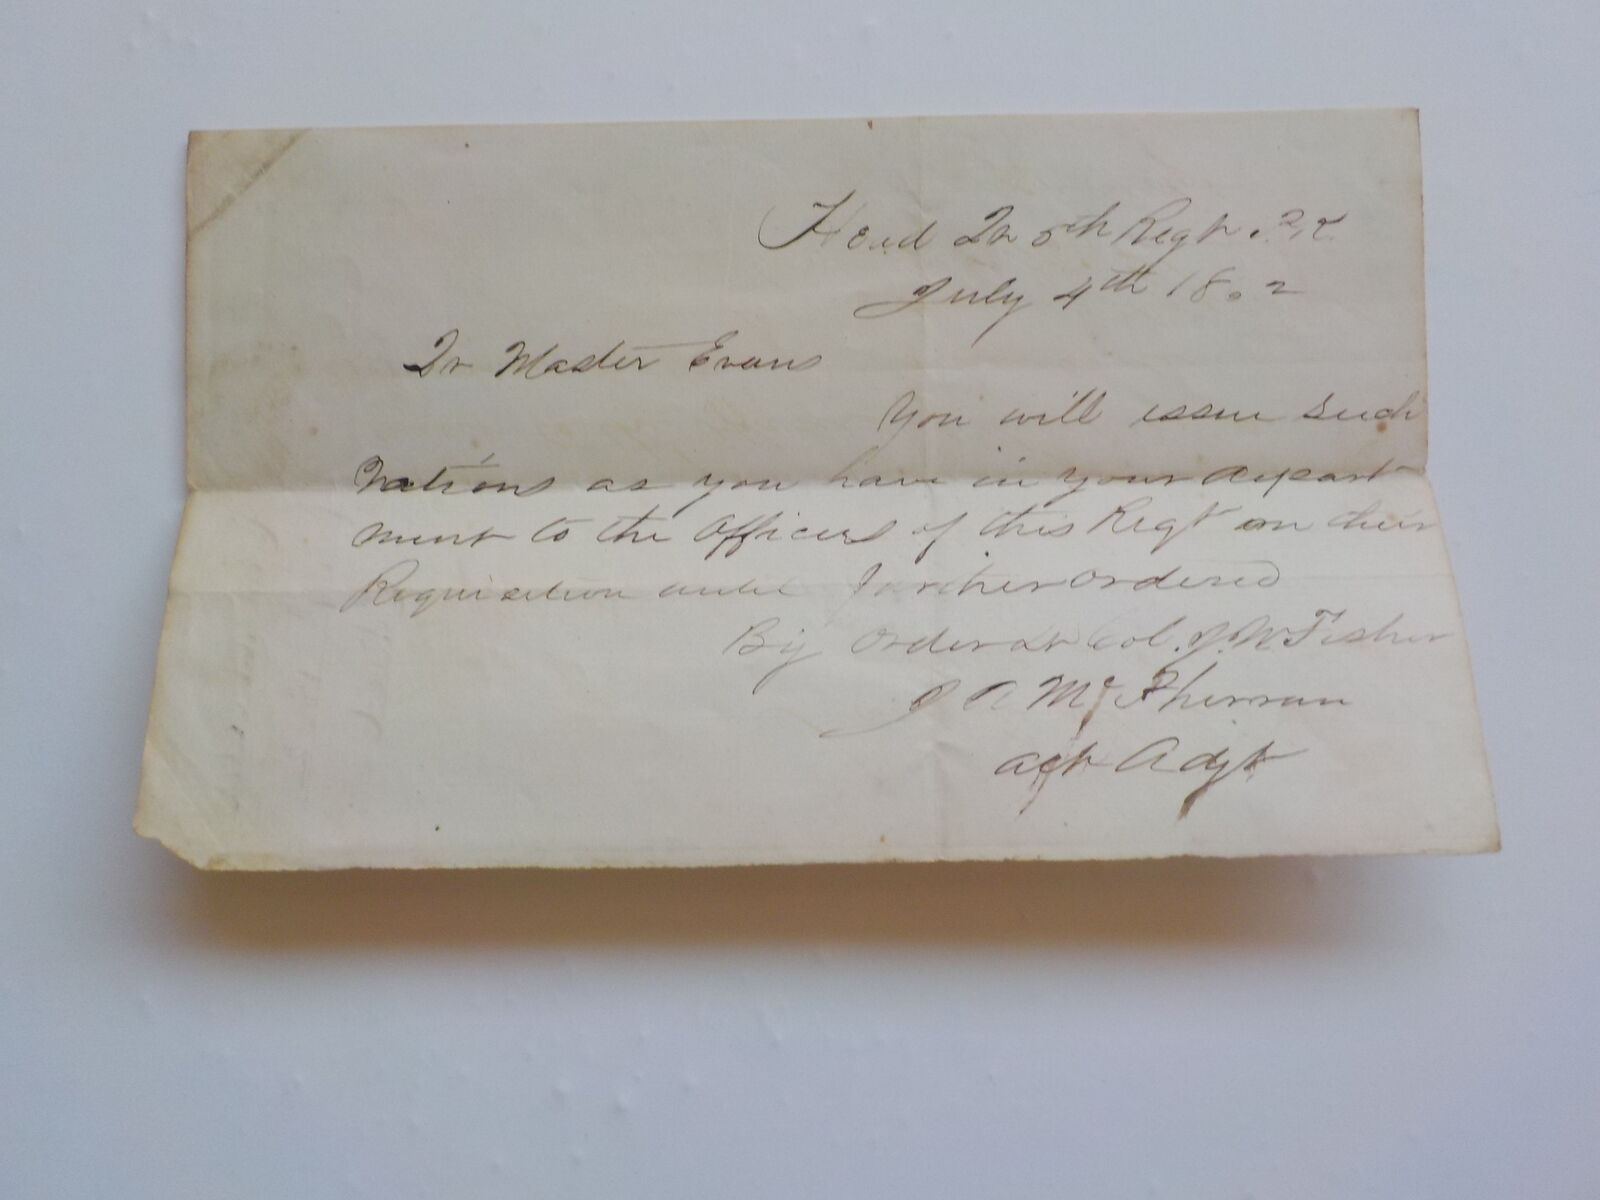 Head Qr 5th Regt P.R.
July 4th 18 2
Qr Master Evans
You will issue such
Rations as you have in your depart
ment to the Officers of this Regt on their
Requisition until further ordered
By Order Lt Col. J. W Fisher
J A McPherran
act Adjt